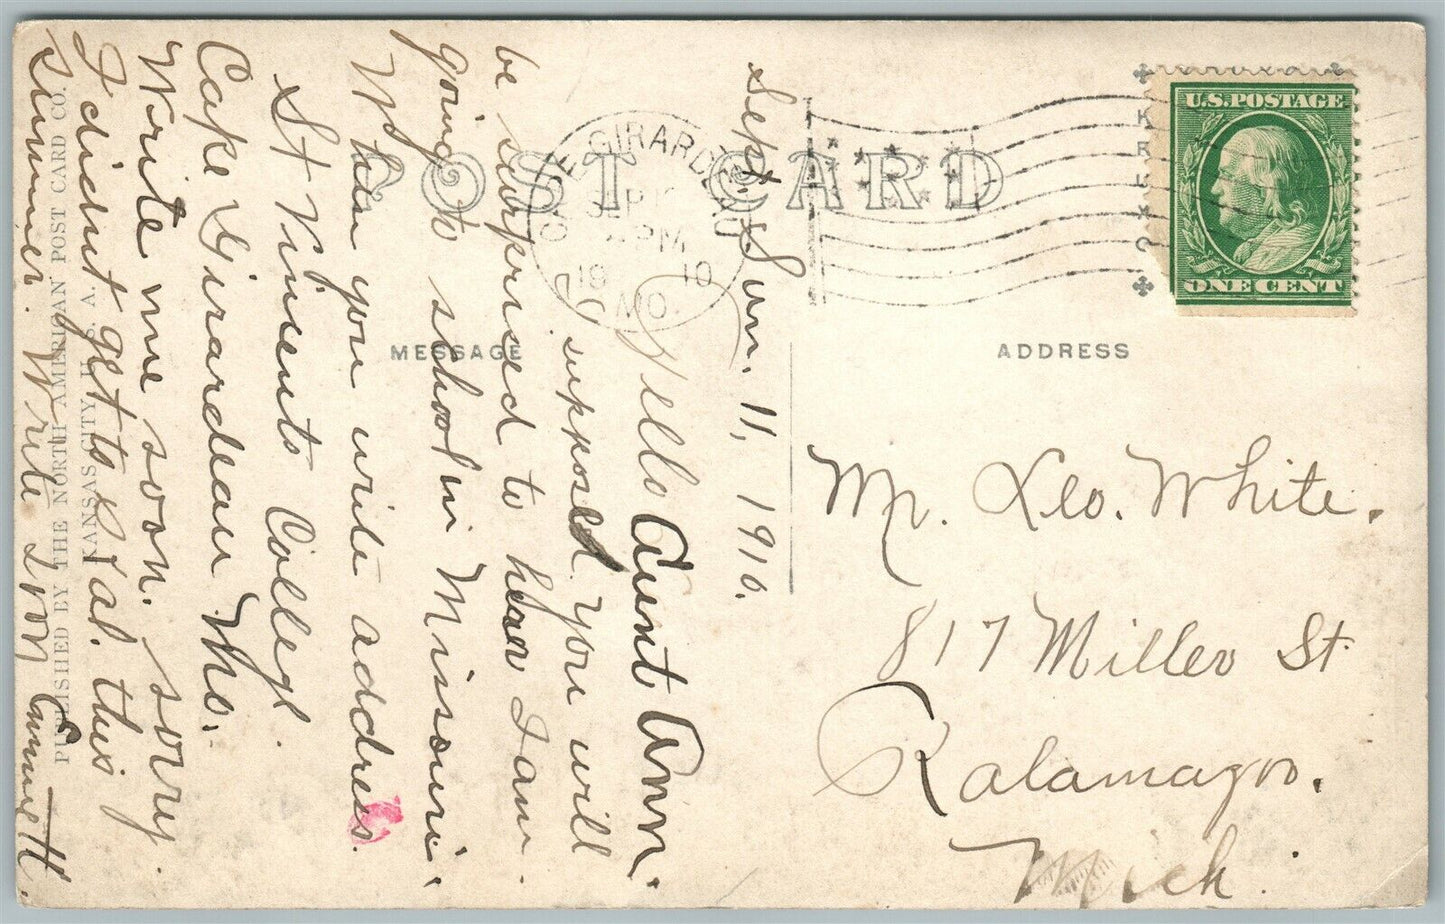 POST CARD
U.S. POSTAGE
ONE CENT
CAPE GIRARDEAU
SEP
PM
19 10
MO.
MESSAGE
ADDRESS
Sept. Sun. 11, 1910.
Hello Aunt Ann.
I supposed you will
be surprised to hear I am
going to school in Missouri.
When you write address.
St Vincents College.
Cape Girardeau Mo.
Write me soon. sorry
I didnt get to Kal. this
summer. Write soon Emmet H.
Mr. Leo. White.
817 Miller St.
Kalamazoo.
Mich.
PUBLISHED BY THE NORTH AMERICAN POST CARD CO.
KANSAS CITY, U. S. A.